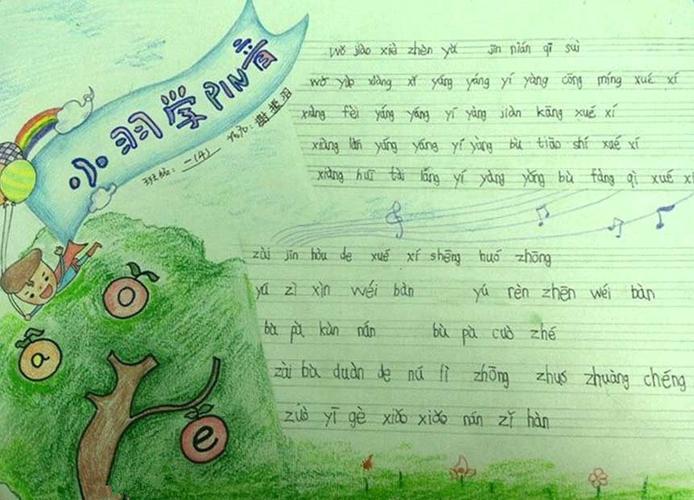 小羽学PIN音
班级：一(4)
wǒ jiào xiè zhèn yǔ jīn nián qī suì
wǒ yào xiàng xǐ yáng yáng yí yàng cōng míng xué xí
xiàng fèi yáng yáng yí yàng jiàn kāng xué xí
xiàng lǎn yáng yáng yí yàng bù tiāo shí xué xí
xiàng huī tài láng yí yàng yǒng bù fàng qì xué xí
zài jīn hòu de xué xí shēng huó zhōng
yǔ zì xìn wéi bàn yǔ rèn zhēn wéi bàn
bù pà kùn nán bù pà cuò zhé
zài bù duàn de nǔ lì zhōng zhuó zhuàng chéng
zuò yī gè xiǎo xiǎo nán zǐ hàn
a
o
e